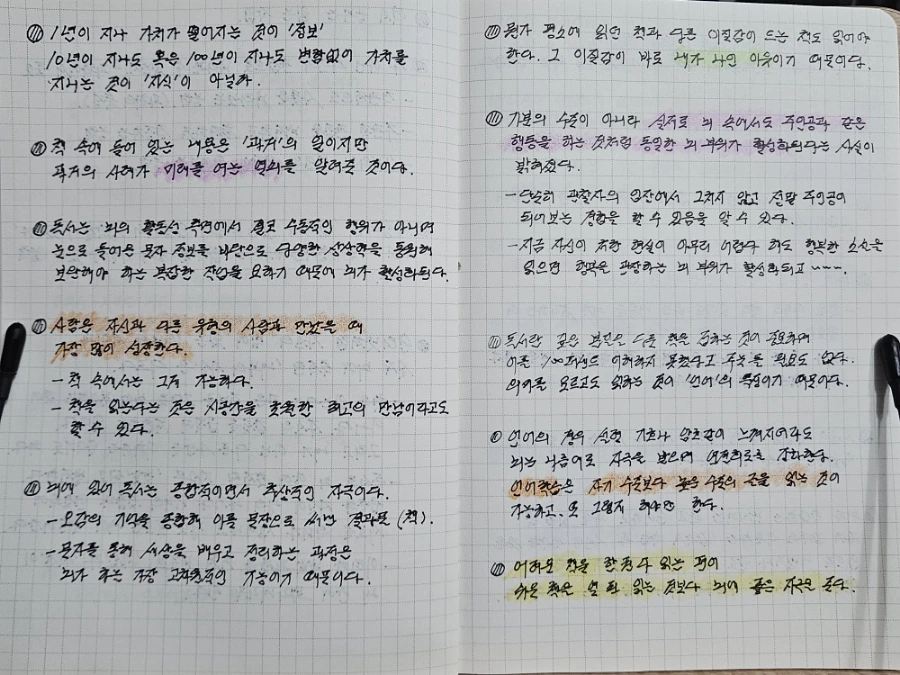 1년이 지나 가치가 떨어지는 것이 '정보'
10년이 지나도 혹은 100년이 지나도 변함없이 가치를
지니는 것이 '지식'이 아닐까.
책 속에 들어 있는 내용은 '과거'의 일이지만
과거의 사례가 미래를 여는 열쇠를 알려준 것이다.
독서는 뇌의 활동성 측면에서 결코 수동적인 행위가 아니며
눈으로 들어온 문자 정보를 바탕으로 다양한 상상력을 동원해
보완해야 하는 복잡한 작업을 요하기 때문에 뇌가 활성화된다.
사람은 자신과 다른 유형의 사람과 만났을 때
가장 많이 성장한다.
- 책 속에서는 그게 가능하다.
- 책을 읽는다는 것은 시공간을 초월한 최고의 만남이라고도
할 수 있다.
뇌에 있어 독서는 종합적이면서 추상적인 자극이다.
- 오감의 기억을 종합해 이를 문장으로 써낸 결과물 (책).
- 문자를 통해 세상을 배우고 정리하는 과정은
뇌가 하는 가장 고차원적인 기능이기 때문이다.
뭔가 평소에 읽던 책과 다른 이질감이 드는 책도 읽어야
한다. 그 이질감이 바로 내가 나인 이유이기 때문이다.
기분의 수준이 아니라 실제로 뇌 속에서도 주인공과 같은
행동을 하는 것처럼 동일한 뇌 부위가 활성화된다는 사실이
밝혀졌다.
- 단순히 관찰자의 입장에서 그치지 않고 정말 주인공이
되어보는 경험을 할 수 있음을 알 수 있다.
- 지금 자신이 처한 현실이 아무리 어렵다 해도 행복한 소설을
읽으면 행복을 관장하는 뇌 부위가 활성화되고 ~~~.
독서란 깊은 부분은 다른 책을 접하는 것이 필요하며
이를 100퍼센트 이해하지 못했다고 주눅 들 필요도 없다.
의미를 모르고도 읽히는 것이 '언어'의 특징이기 때문이다.
언어의 경우 설령 기초나 압박감이 느껴지더라도
뇌는 나름대로 자극을 받으며 언어회로를 강화한다.
언어학습은 자기 수준보다 높은 수준의 글을 읽는 것이
가능하고, 또 그렇게 해야만 한다.
어려운 책을 한 권 다 읽는 편이
쉬운 책을 열 권 읽는 것보다 뇌에 좋은 자극을 준다.